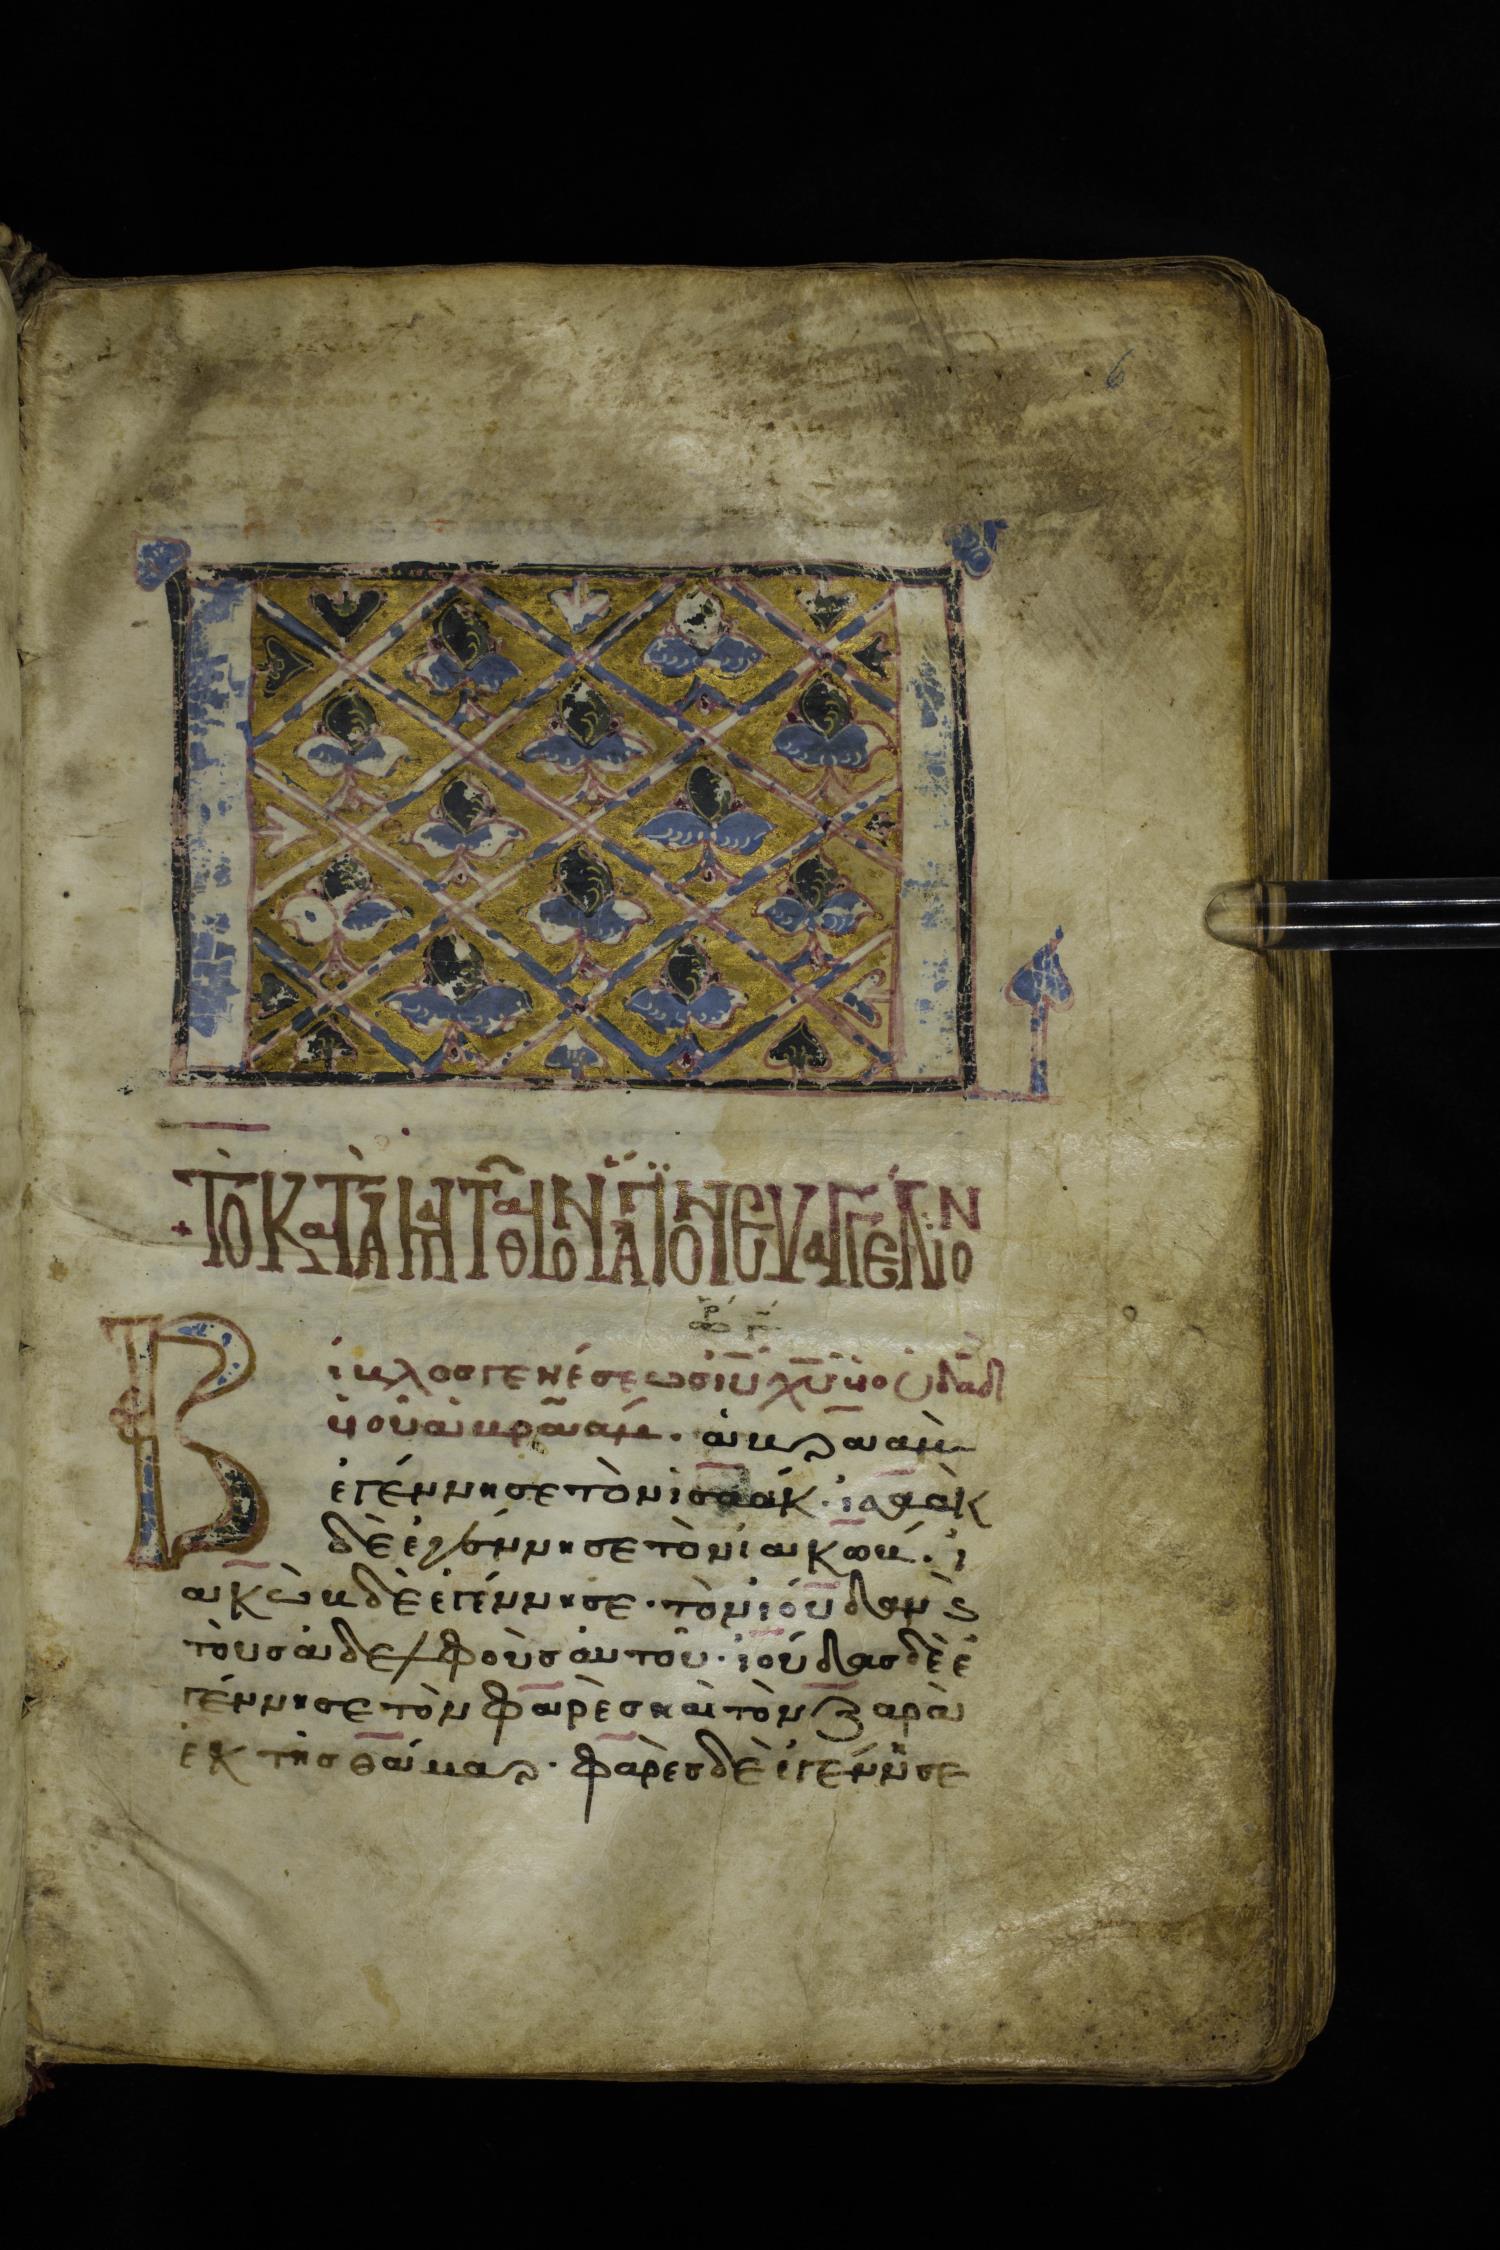 6
+ ΤὸΚατὰΜατθαῖονἅγιονευαγγέλιον
Βίβλοσγενέσεωσιυχυυἱοῦδαδ
υἱοῦἀβραάμ· ἀβραὰμ
ἐγέννησετὸνἰσαάκ· ἰσαὰκ
δὲἐγέννησετὸνἰακώβ· ἰ
ακὼβδὲἐγέννησε· τὸνἰούδανκ
τοὺσἀδελφοὺσἀυτοῦ· ἰούδασδὲἐ
γέννησετὸνφαρὲσκαὶτὸνζαρὰ
ἐκτῆσθάμαρ· φαρὲσδὲἐγέννησε